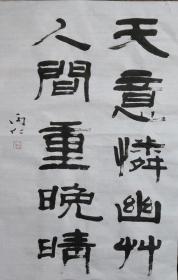 天意憐幽艸
人間重晚晴